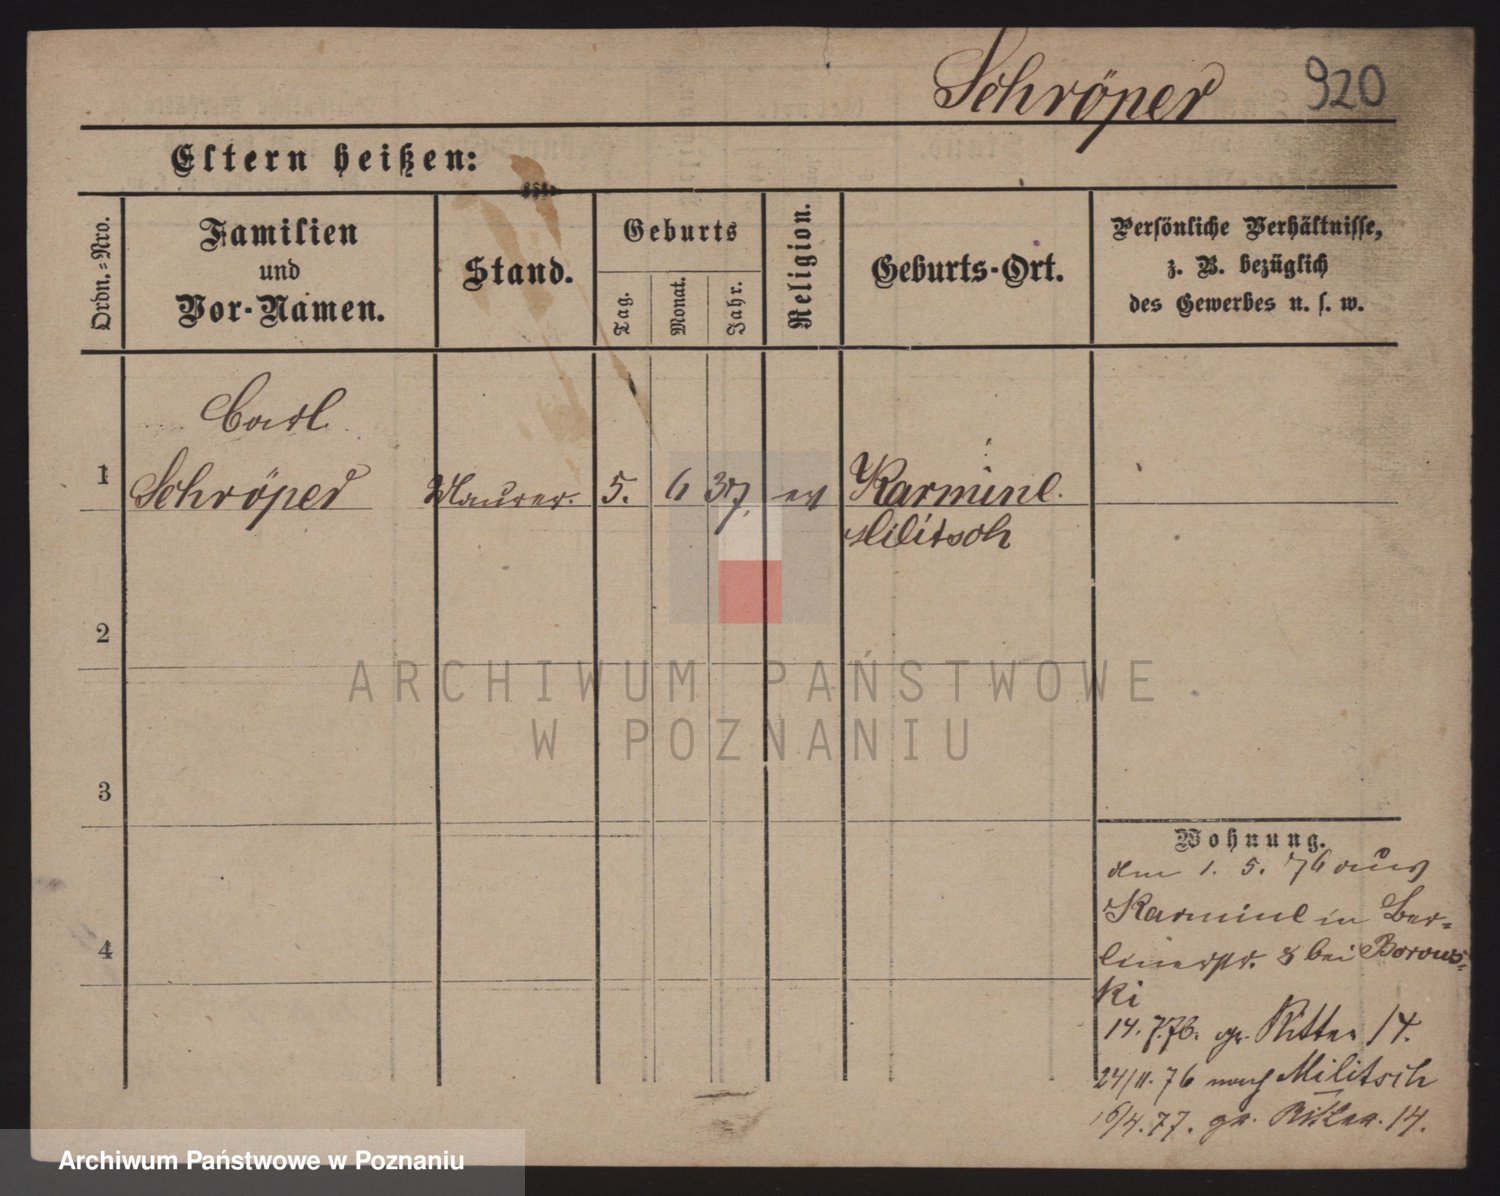 Schröper 920
Eltern heißen:
Ordn.=Nro.
Familien
und
Vor-Namen.
Stand.
Geburts
Tag.
Monat.
Jahr.
Religion.
Geburts-Ort.
Persönliche Verhältnisse,
z. B. bezüglich
des Gewerbes u. s. w.
Carl
1 Schröper Maurer. 5. 6 37. ev Karminl.
Militsch
2
3
4
Wohnung.
den 1. 5. 76 aus
Karminl in Ber-
linerstr. 8 bei Borows-
ki
14. 7.76. gr. Ritter 14.
24/11. 76 nach Militsch
16/4. 77. gr. Ritter. 14.
ARCHIWUM PAŃSTWOWE
W POZNANIU
Archiwum Państwowe w Poznaniu